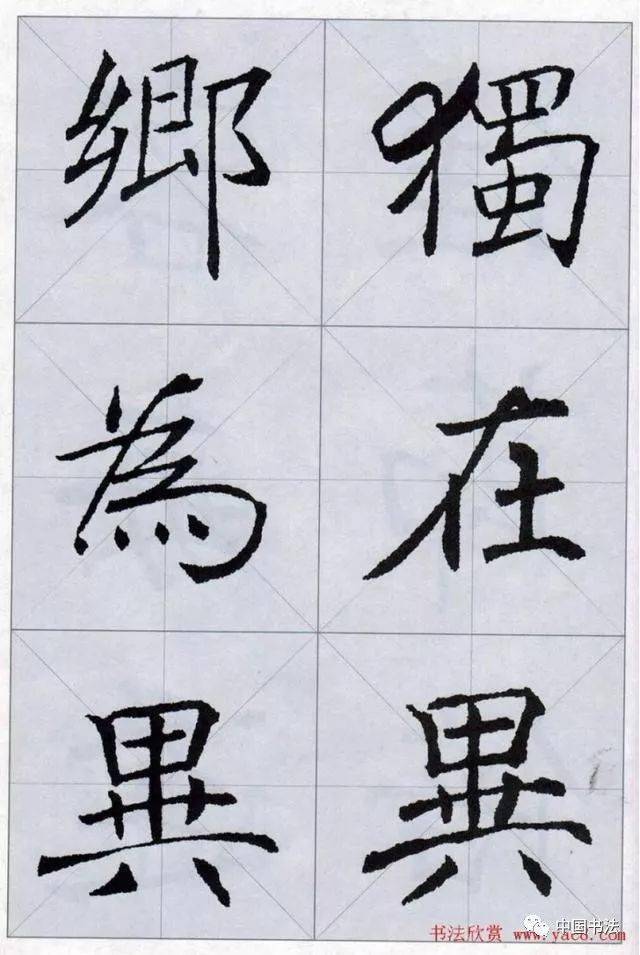 獨在異
鄉為異
中国书法
书法欣赏 www.yac8.com